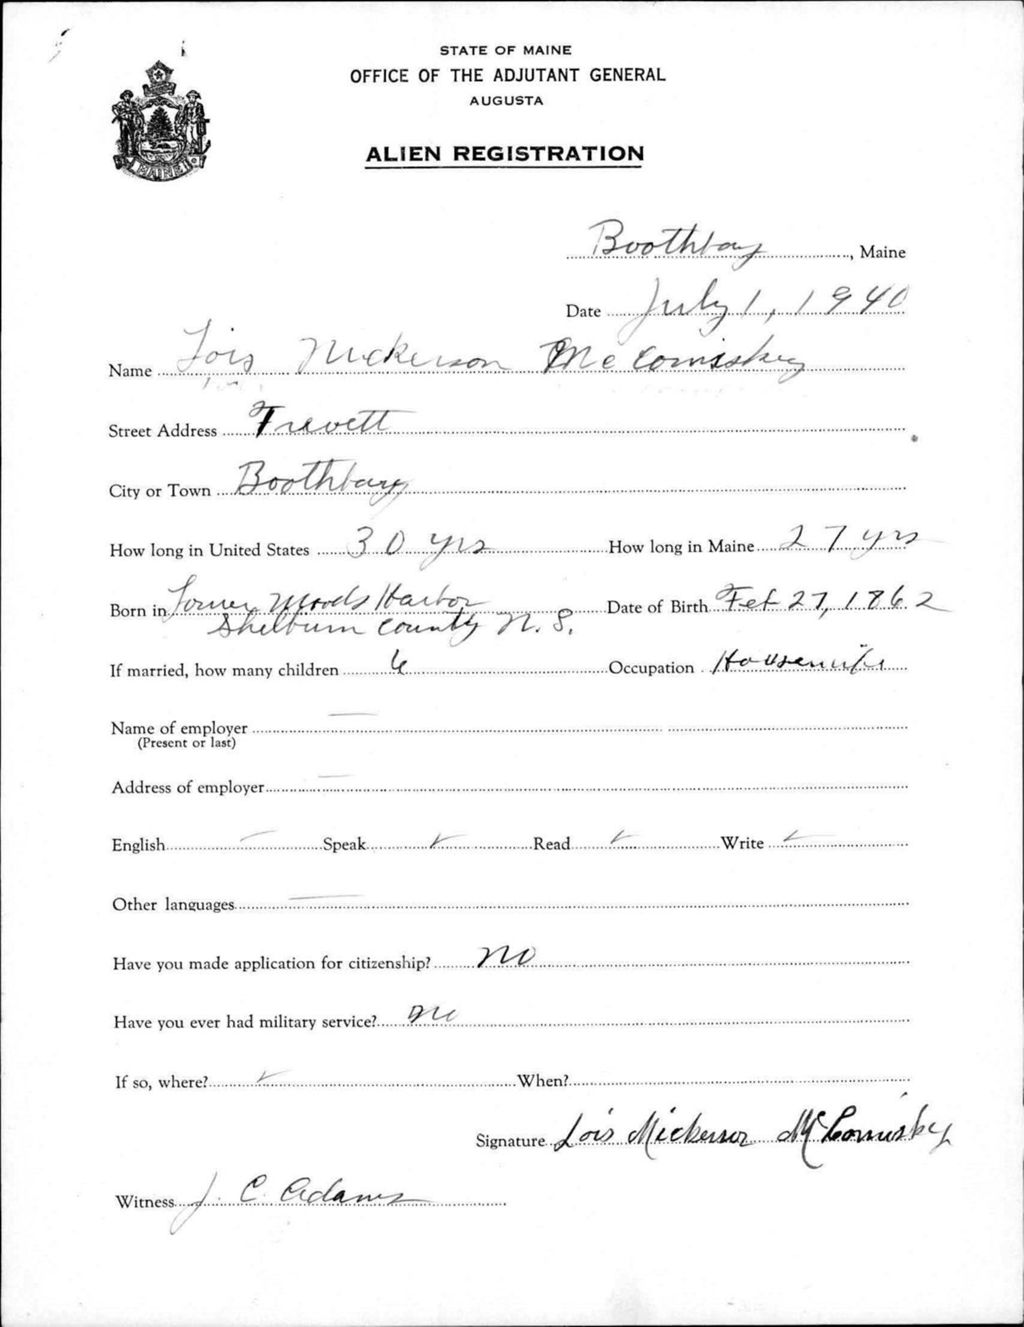 STATE OF MAINE
OFFICE OF THE ADJUTANT GENERAL
AUGUSTA
ALIEN REGISTRATION
Boothbay, Maine
Date July 1, 1940
Name Lois Nickerson McComiskey
Street Address Trevett
City or Town Boothbay
How long in United States 30 yrs How long in Maine 27 yrs
Born in Lower Woods Harbor Date of Birth Feb 27, 1862
Shelburn County N. S.
If married, how many children 6 Occupation Housewife
Name of employer —
(Present or last)
Address of employer —
English — Speak ✓ Read ✓ Write ✓
Other languages —
Have you made application for citizenship? no
Have you ever had military service? no
If so, where? ✓ When?
Signature Lois Nickerson McComiskey
Witness J. C. Adams